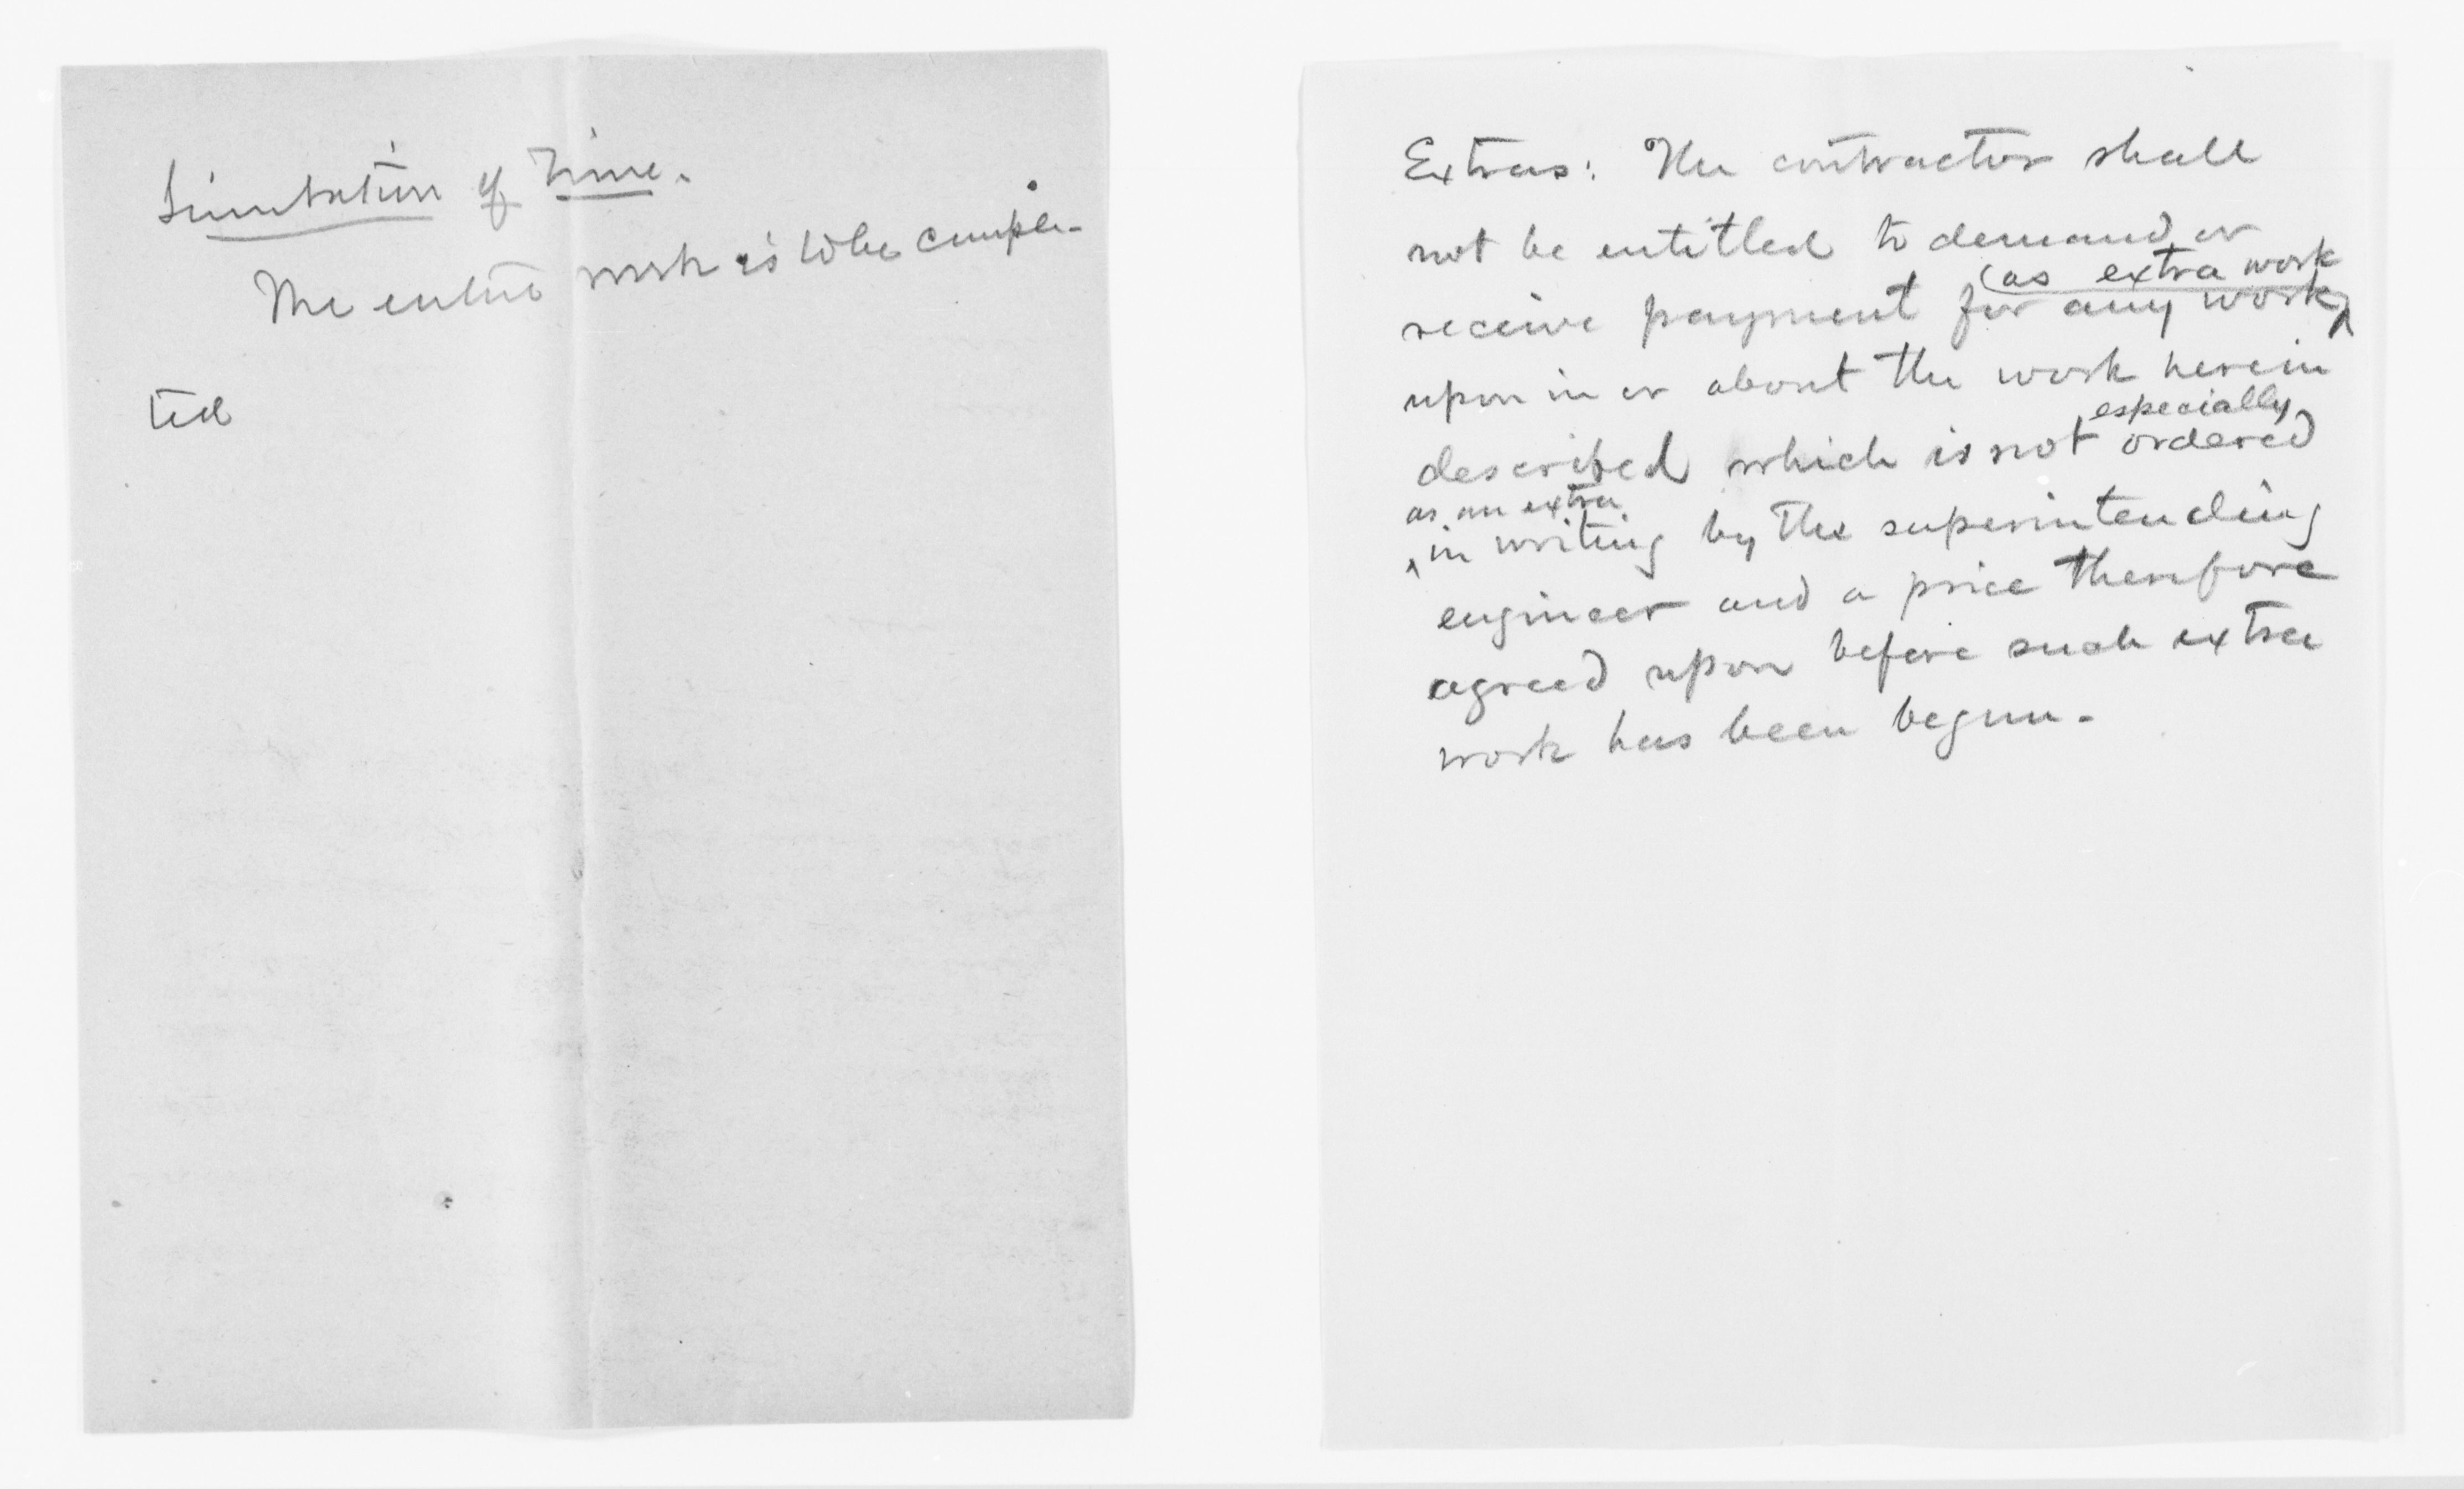 Limitation of Time.
The entire work is to be comple-
ted
Extras: The contractor shall
not be entitled to demand or
as extra work
receive payment for any work
upon in or about the work herein
especially
described which is not ordered
as an extra
in writing by the superintending
engineer and a price therefore
agreed upon before such extra
work has been begun.